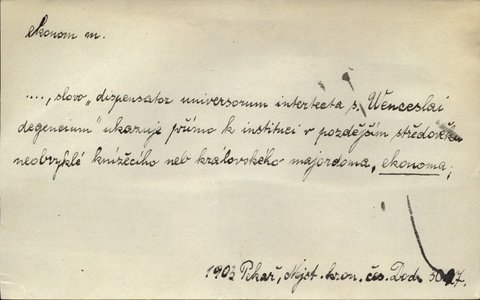 ekonom m.
...., slovo „dispensator universorum intertecta s. Wenceslai
degencium" ukazuje přímo k instituci v pozdějším středověku
neobvyklé knížecího neb královského majordoma, ekonoma;
1903 Pekař, Nejst. kron. čes. Dod.